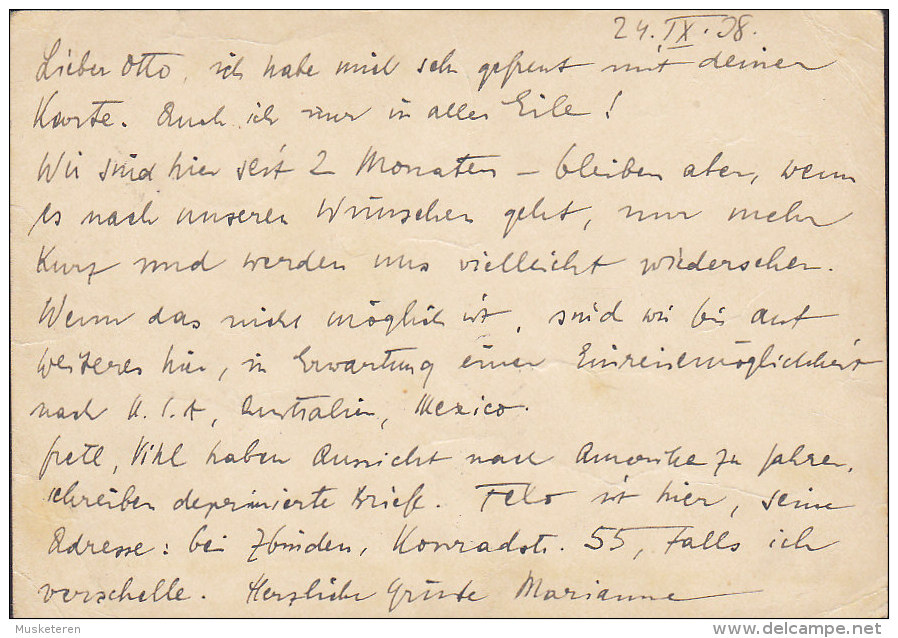 24. IX. 38.
Lieber Otto, ich habe mich sehr gefreut mit deiner
Karte. Auch ich nur in aller Eile!
Wir sind hier seit 2 Monaten – bleiben aber, wenn
es nach unseren Wünschen geht, nur mehr
kurz und werden uns vielleicht wiedersehen.
Wenn das nicht möglich ist, sind wir bis auf
weiteres hier, in Erwartung einer Einreisemöglichkeit
nach U.S.A, Australien, Mexico.
haben Aussicht nach Amerika zu fahren,
schreiben deprimierte Briefe. Felo ist hier, seine
Adresse: bei Zbinden, Konradstr. 55, Falls ich
verschelle. Herzliche Grüße Marianne
Musketeren
www.delcampe.net